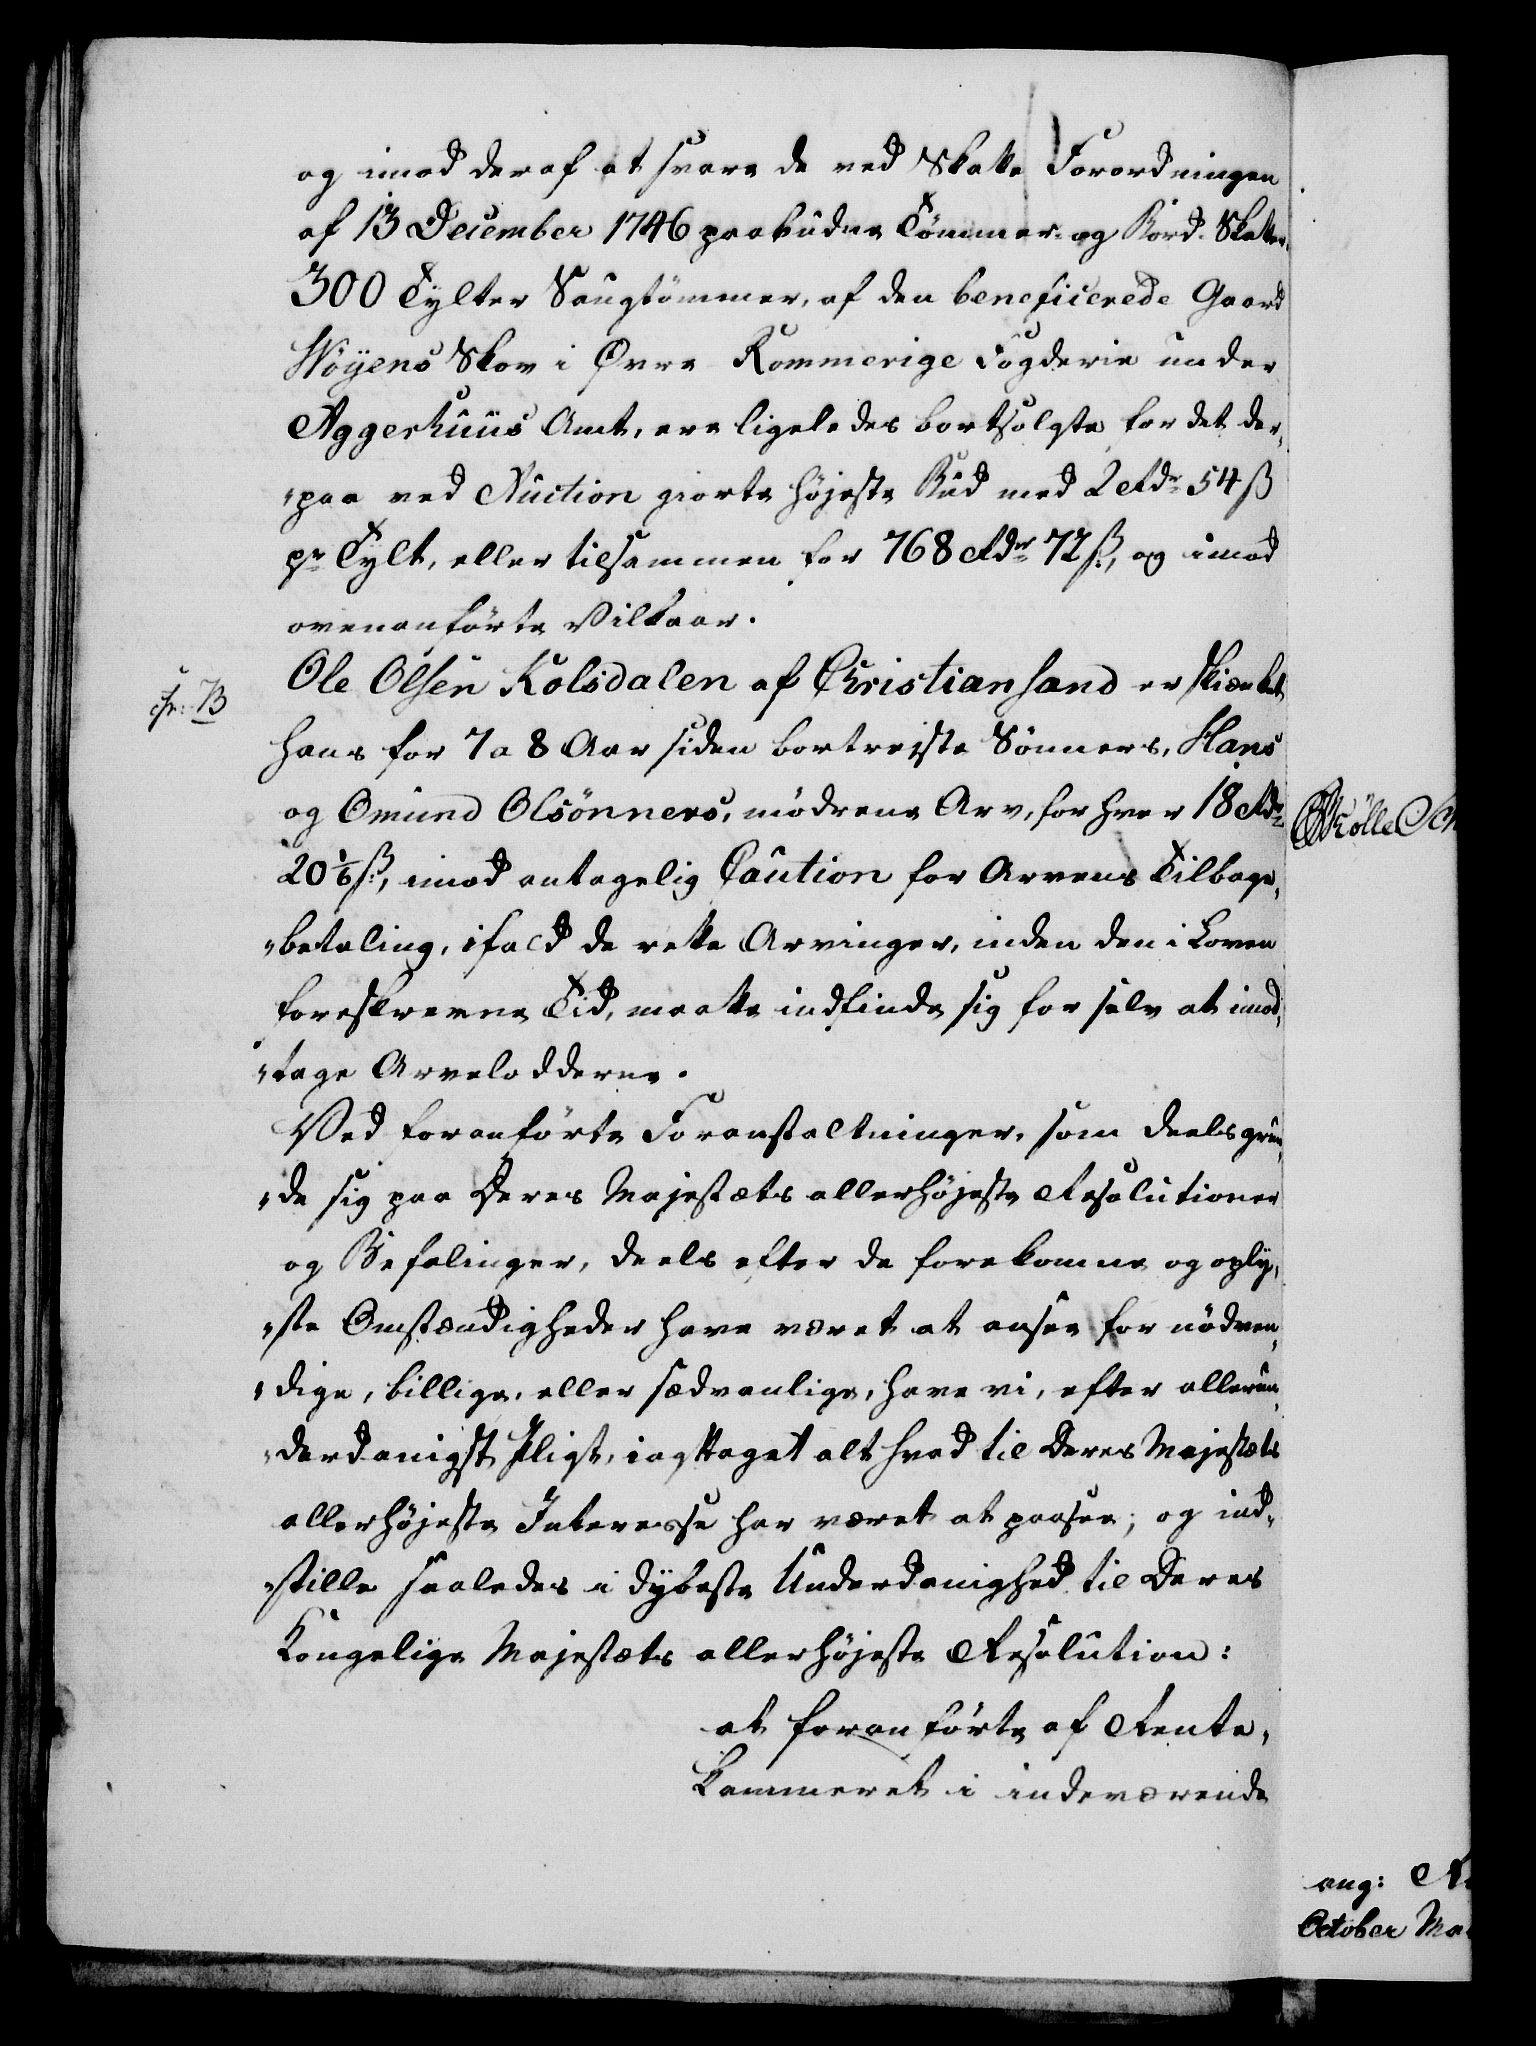 og imod deraf at svare de ved Skatte Forordningen
af 13 December 1746 paabudne Tömmer- og Bord-Skatter.
300 Tylter Saugtömmer, af den beneficerede Gaard
Wöyens Skov i Øvre Rommerige Fogderie under
Aggerhuus Amt, ere ligeledes bortsolgte for det der-
"paa ved Auction giorte höjeste Bud med 2 Rdr 54 ß
pr Tylt, eller tilsammen for 768 Rdr 72 ß, og imod
ovenanførte Vilkaar.
Ole Olsen Kolsdalen af Christiansand er skienket
cfr: 73
hans for 7 a 8 Aar siden bortrejste Sönners, Hans
og Omund Olsönners, mödrene Arv, for hver 18 Rdr
20 1/6 ß, imod antagelig Caution for Arvens Tilbage-
"betaling, ifald de rette Arvinger, inden den i Loven
foreskrevne Tid, maatte indfinde sig for selv at imod-
"tage Arvelodderne.
Ved foranførte Foranstaltninger, som deels grun-
"de sig paa Deres Majestæts allerhöjeste Resolutioner
og Befalinger, deels efter de forekomne og oply-
"ste Omstændigheder have været at ansee for nödven-
"dige, billige, eller sædvanlige, have vi, efter allerun-
"derdanigst Pligt, iagttaget alt hvad til Deres Majestæts
allerhöjeste Interesse har været at paasee; og ind-
"stille saaledes i dybeste Underdanighed til Deres
Kongelige Majestæts allerhöjeste Resolution:
at foranførte af Rente-
Kammeret i indeværende
ang:
October